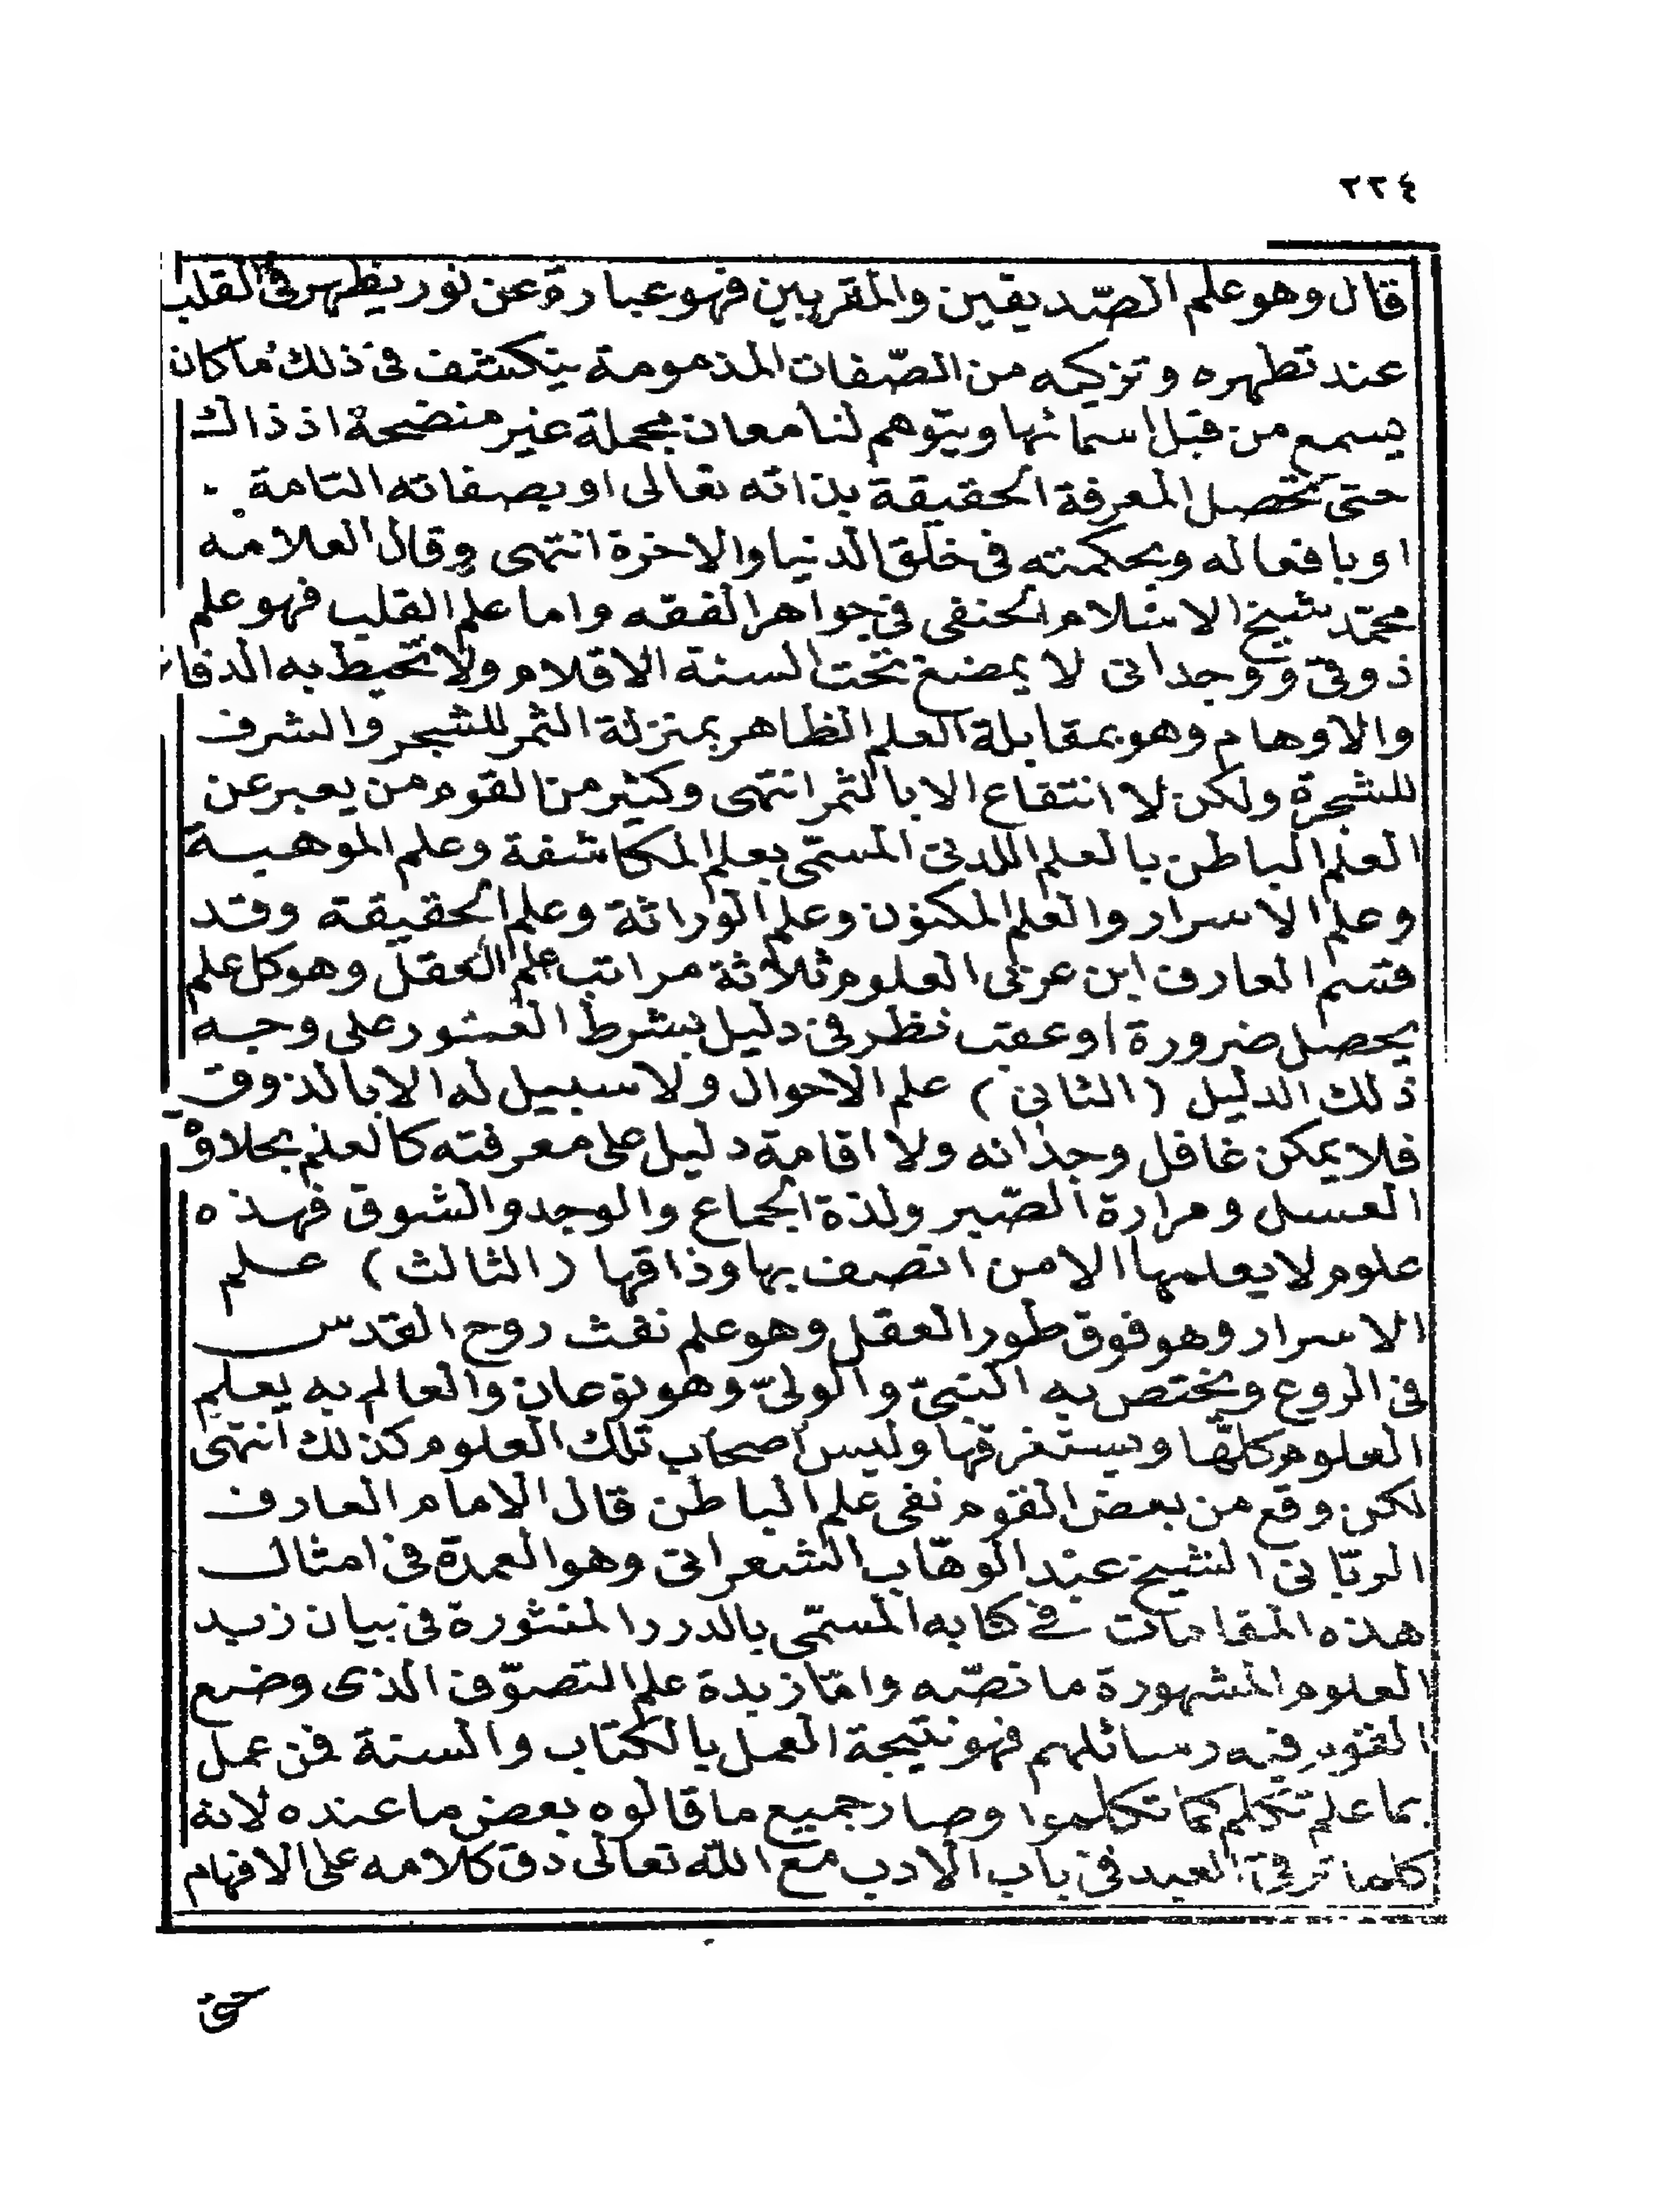 ٢٢٤
قال وهو علم الصّديقين والمقربين فهو عبارة عن نور يظهر في القلب
عند تطهره وتزكيه من الصّفات المذمومة ينكشف فى ذلك ما كان
يسمع من قبل اسمائها ويتوهم لنا معان مجملة غير متضحة اذ ذاك
حتى تحصل المعرفة الحقيقة بذاته تعالى او بصفاته التامة
او بافعاله وبحكمته فى خلق الدنيا والاخرة انتهى وقال العلامه
محمّد شيخ الاسلام الحنفى فى جواهر الفقه واما علم القلب فهو علم
ذوقى ووجدانى لا يمضغ تحت السنة الاقلام ولا تحيط به الدفا
والاوهام وهو بمقابلة العلم الظاهر بمنزلة الثمر للشجر والشرف
للشجرة ولكن لا انتفاع الا بالثمر انتهى وكثير من القوم من يعبر عن
العلم الباطن بالعلم اللدنى المسمّى بعلم المكاشفة وعلم الموهبة
وعلم الاسرار والعلم المكنون وعلم الوراثة وعلم الحقيقة وقد
قسم العارف ابن عربى العلوم ثلاثة مراتب علم العقل وهو كل علم
يحصل ضرورة او عقب نظر فى دليل بشرط العثور على وجه
ذلك الدليل (الثانى) علم الاحوال ولا سبيل له الا بالذوق
فلا يمكن غافل وجدانه ولا اقامة دليل على معرفته كالعلم بحلاوة
العسل ومرارة الصّبر ولذة الجماع والوجد والشوق فهذه
علوم لا يعلمها الا من اتصف بها وذاقها (الثالث) علم
الاسرار وهو فوق طور العقل وهو علم نفث روح القدس
فى الروع ويختص به النبىّ والولىّ وهو نوعان والعالم به يعلم
العلوم كلّها ويستغرقها وليس اصحاب تلك العلوم كذلك انتهى
لكن وقع من بعض القوم نفى علم الباطن قال الامام العارف
الربّانى الشيخ عبد الوهّاب الشعرانى وهو العمدة فى امثال
هذه المقامات في كتابه المسمّى بالدرر المنثورة فى بيان زبد
العلوم المشهورة ما نصّه وامّا زبدة علم التصوّف الذى وضع
القوم فيه رسائلهم فهو نتيجة العمل بالكتاب والسنة فمن عمل
بما علم تكلم كما تكلموا وصار جميع ما قالوه بعض ما عنده لانه
كلما ترقى العبد فى باب الادب مع الله تعالى دق كلامه على الافهام
حتى